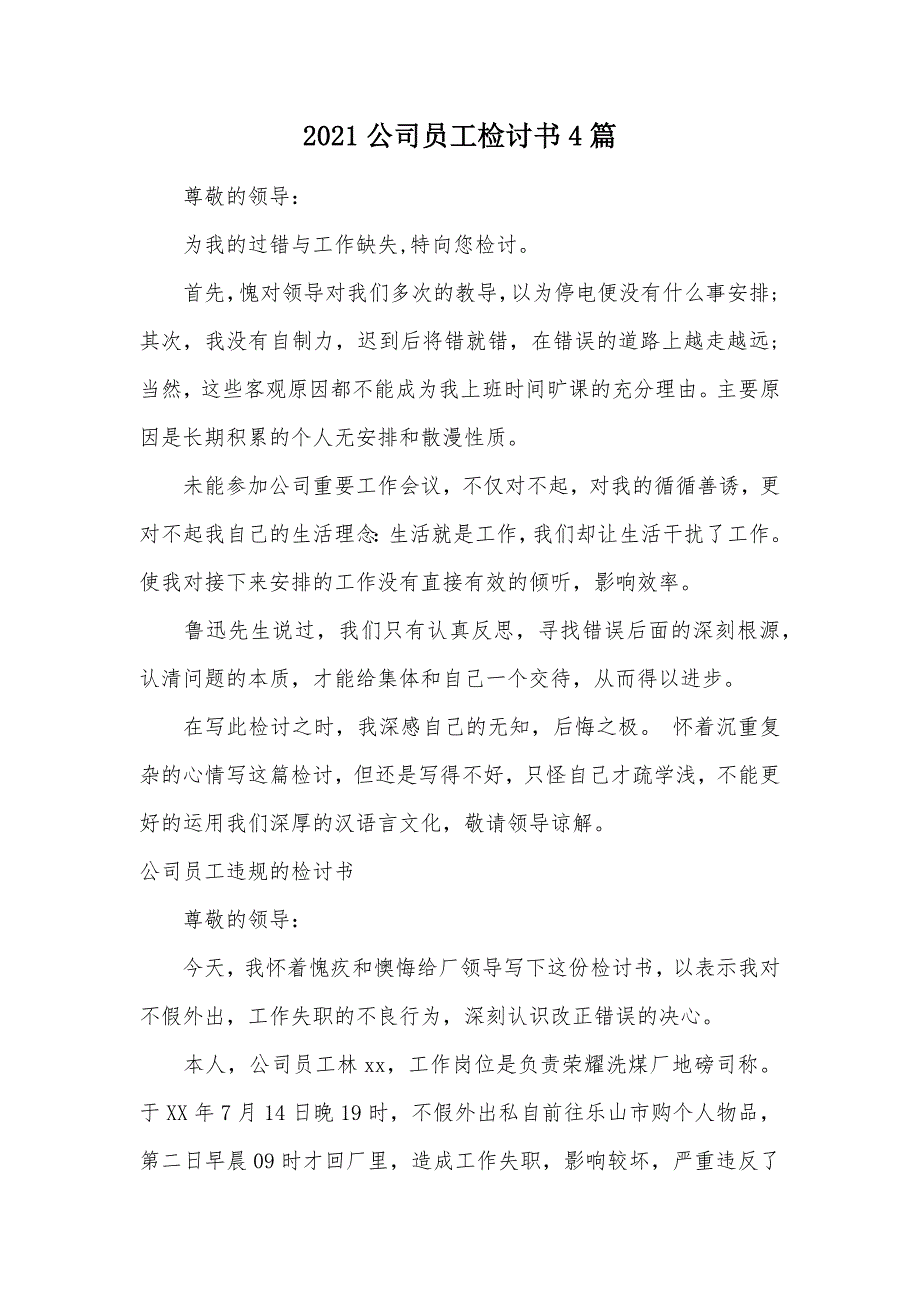 2021公司员工检讨书4篇
尊敬的领导：
为我的过错与工作缺失,特向您检讨。
首先，愧对领导对我们多次的教导，以为停电便没有什么事安排；
其次，我没有自制力，迟到后将错就错，在错误的道路上越走越远；
当然，这些客观原因都不能成为我上班时间旷课的充分理由。主要原
因是长期积累的个人无安排和散漫性质。
未能参加公司重要工作会议，不仅对不起，对我的循循善诱，更
对不起我自己的生活理念：生活就是工作，我们却让生活干扰了工作。
使我对接下来安排的工作没有直接有效的倾听，影响效率。
鲁迅先生说过，我们只有认真反思，寻找错误后面的深刻根源，
认清问题的本质，才能给集体和自己一个交待，从而得以进步。
在写此检讨之时，我深感自己的无知，后悔之极。 怀着沉重复
杂的心情写这篇检讨，但还是写得不好，只怪自己才疏学浅，不能更
好的运用我们深厚的汉语言文化，敬请领导谅解。
公司员工违规的检讨书
尊敬的领导：
今天，我怀着愧疚和懊悔给厂领导写下这份检讨书，以表示我对
不假外出，工作失职的不良行为，深刻认识改正错误的决心。
本人，公司员工林xx，工作岗位是负责荣耀洗煤厂地磅司称。
于XX年7月14日晚19时，不假外出私自前往乐山市购个人物品，
第二日早晨09时才回厂里，造成工作失职，影响较坏，严重违反了